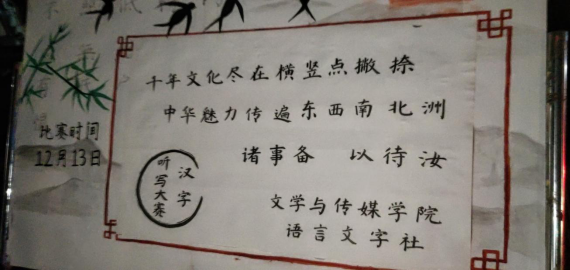 千年文化尽在横竖点撇捺
中华魅力传遍东西南北洲
诸事备 以待汝
比赛时间
12月13日
汉字
听写大赛
文学与传媒学院
语言文字社